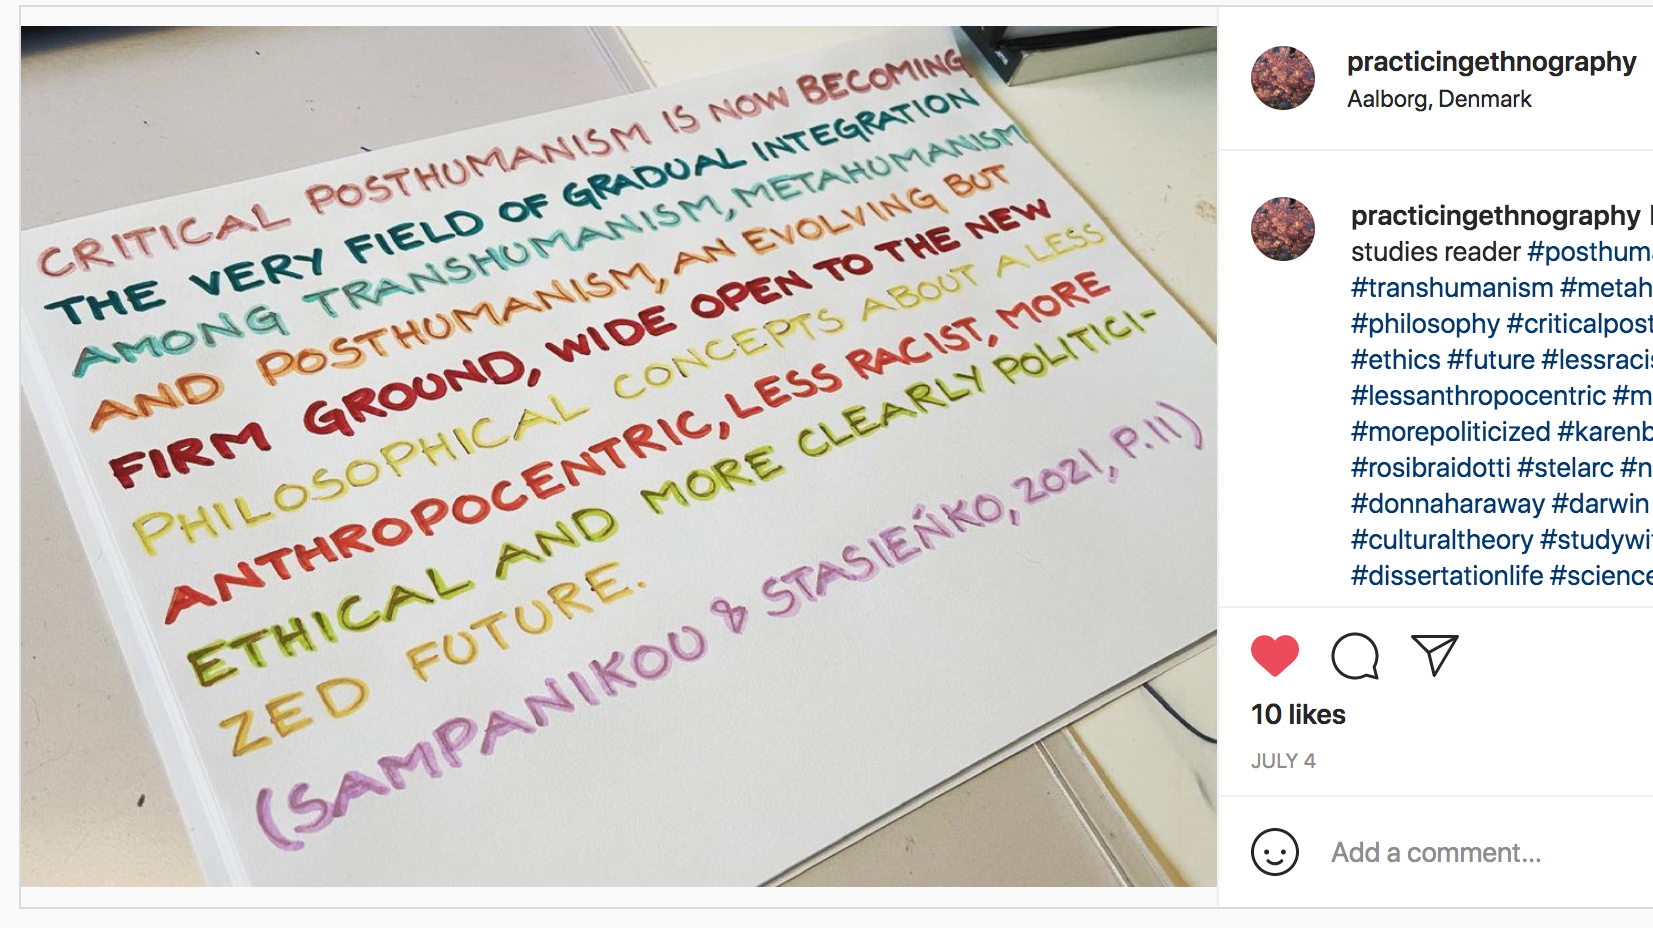 CRITICAL POSTHUMANISM IS NOW BECOMING
THE VERY FIELD OF GRADUAL INTEGRATION
AMONG TRANSHUMANISM, METAHUMANISM
AND POSTHUMANISM, AN EVOLVING BUT
FIRM GROUND, WIDE OPEN TO THE NEW
PHILOSOPHICAL CONCEPTS ABOUT A LESS
ANTHROPOCENTRIC, LESS RACIST, MORE
ETHICAL AND MORE CLEARLY POLITICI-
ZED FUTURE.
(SAMPANIKOU & STASIEŃKO, 2021, P.11)
practicingethnography
Aalborg, Denmark
practicingethnography
studies reader #posthum
#transhumanism #metah
#philosophy #criticalpost
#ethics #future #lessracis
#lessanthropocentric #m
#morepoliticized #karenb
#rosibraidotti #stelarc #n
#donnaharaway #darwin
#culturaltheory #studywi
#dissertationlife #science
10 likes
JULY 4
Add a comment...